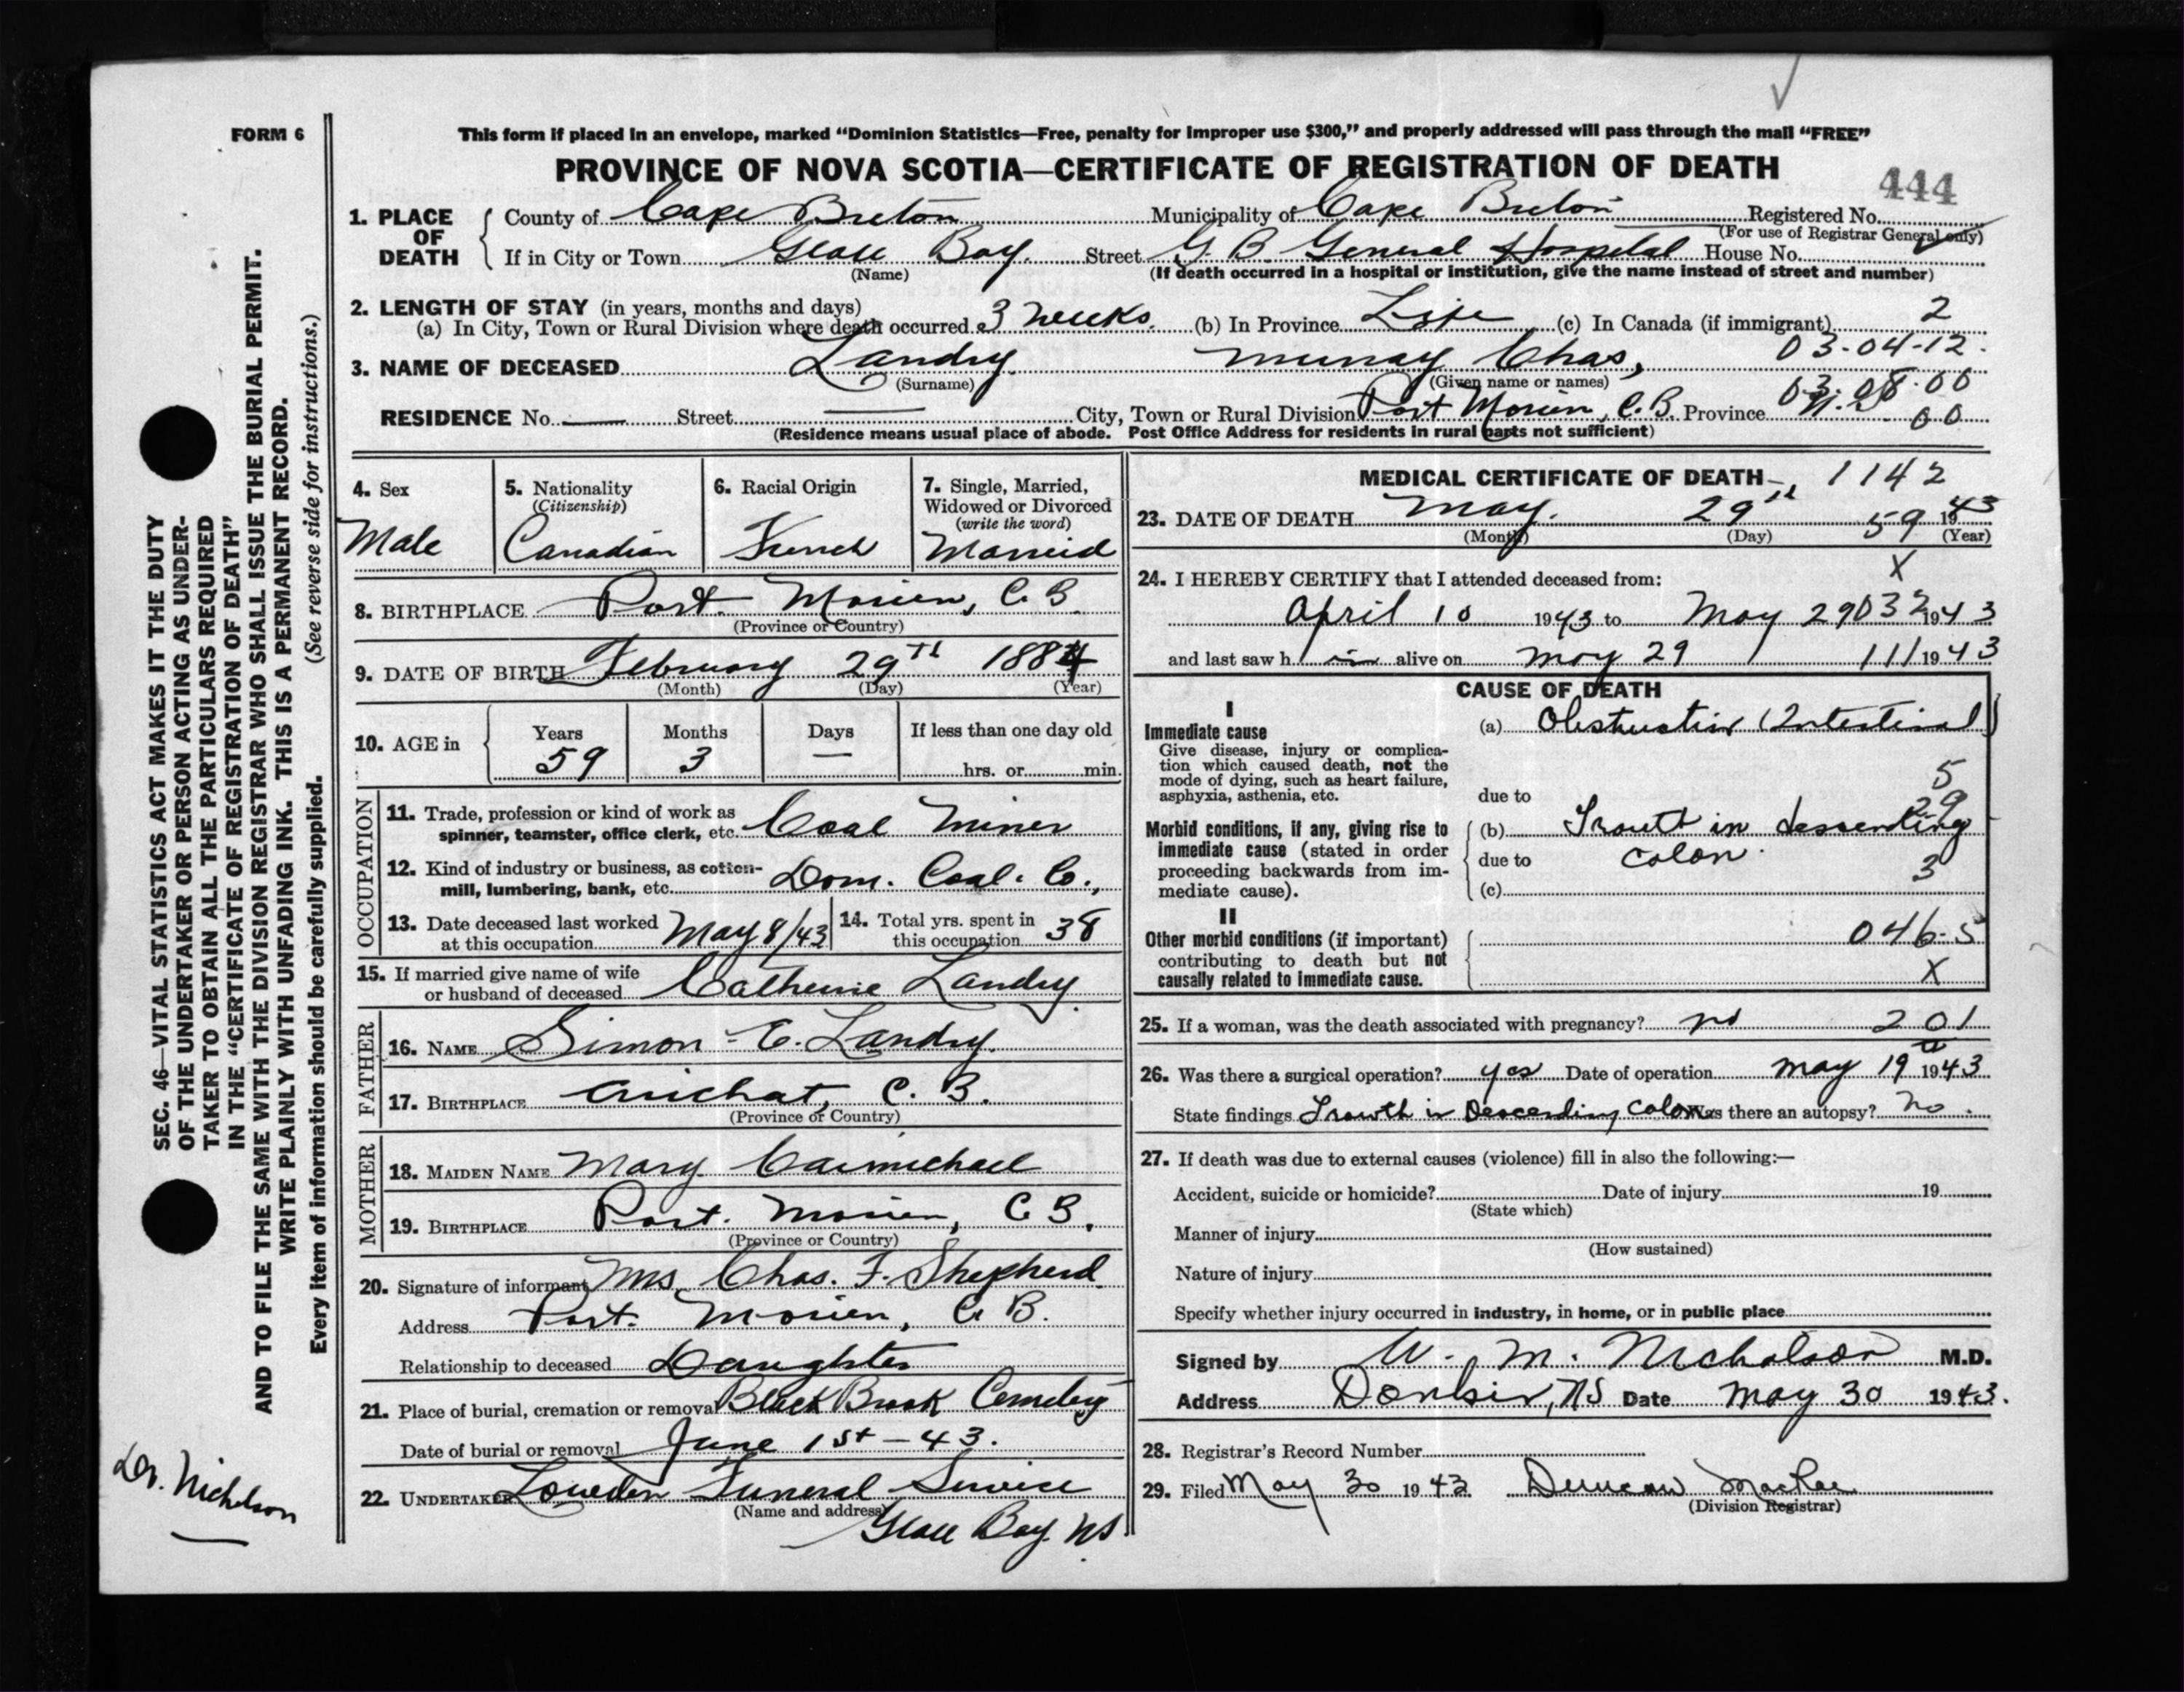 FORM 6
This form if placed in an envelope, marked "Dominion Statistics—Free, penalty for improper use $300," and properly addressed will pass through the mail "FREE"
PROVINCE OF NOVA SCOTIA—CERTIFICATE OF REGISTRATION OF DEATH
444
1. PLACE OF DEATH
County of Cape Breton Municipality of Cape Breton Registered No.
(For use of Registrar General only)
If in City or Town Glace Bay. Street G. B. General Hospital House No.
(Name) (If death occurred in a hospital or institution, give the name instead of street and number)
2. LENGTH OF STAY (in years, months and days)
(a) In City, Town or Rural Division where death occurred 3 weeks. (b) In Province Life (c) In Canada (if immigrant) 2
03-04-12.
3. NAME OF DECEASED Landry Murray Chas,
(Surname) (Given name or names)
03.08.00
RESIDENCE No. — Street — City, Town or Rural Division Port Morien, C.B. Province N.S 00
(Residence means usual place of abode. Post Office Address for residents in rural parts not sufficient)
4. Sex
Male
5. Nationality
(Citizenship)
Canadian
6. Racial Origin
French
7. Single, Married,
Widowed or Divorced
(write the word)
Married
8. BIRTHPLACE Port Morien, C. B.
(Province or Country)
9. DATE OF BIRTH February 29th 1884
(Month) (Day) (Year)
10. AGE in
Years Months Days If less than one day old
59 3 — hrs. or min.
OCCUPATION
11. Trade, profession or kind of work as
spinner, teamster, office clerk, etc. Coal Miner
12. Kind of industry or business, as cotton-
mill, lumbering, bank, etc. Dom. Coal. Co.,
13. Date deceased last worked
at this occupation May 8/43
14. Total yrs. spent in
this occupation 38
15. If married give name of wife
or husband of deceased Catherine Landry
FATHER
16. NAME Simon E. Landry.
17. BIRTHPLACE Arichat, C. B.
(Province or Country)
MOTHER
18. MAIDEN NAME Mary Carmichael
19. BIRTHPLACE Port. Morien, C B.
(Province or Country)
20. Signature of informant Mrs. Chas. F. Shepherd
Address Port. Morien, C B.
Relationship to deceased Daughter
21. Place of burial, cremation or removal Black Brook Cemetery
Date of burial or removal June 1st - 43.
22. UNDERTAKER Lowden Funeral Service
(Name and address)
Glace Bay. NS
MEDICAL CERTIFICATE OF DEATH 1142
23. DATE OF DEATH May. 29th 59 1943
(Month) (Day) (Year)
X
24. I HEREBY CERTIFY that I attended deceased from:
April 10 1943 to May 29 032 1943
and last saw h im alive on May 29 111 1943
CAUSE OF DEATH
I
Immediate cause
Give disease, injury or complica-
tion which caused death, not the
mode of dying, such as heart failure,
asphyxia, asthenia, etc.
(a) Obstruction (Intestinal)
5
due to
29
Morbid conditions, if any, giving rise to
immediate cause (stated in order
proceeding backwards from im-
mediate cause).
(b) Growth in descending
due to colon.
3
(c)
II
Other morbid conditions (if important)
contributing to death but not
causally related to immediate cause.
046-5
X
25. If a woman, was the death associated with pregnancy? no 201
26. Was there a surgical operation? yes Date of operation May 19th 1943
State findings Growth in Descending Colon Was there an autopsy? No.
27. If death was due to external causes (violence) fill in also the following:—
Accident, suicide or homicide? Date of injury 19
(State which)
Manner of injury
(How sustained)
Nature of injury
Specify whether injury occurred in industry, in home, or in public place
Signed by W. M. Nicholson M.D.
Address NS Date May 30 1943.
28. Registrar's Record Number
29. Filed May 30 1943 Duncan MacRae
(Division Registrar)
SEC. 46—VITAL STATISTICS ACT MAKES IT THE DUTY
OF THE UNDERTAKER OR PERSON ACTING AS UNDER-
TAKER TO OBTAIN ALL THE PARTICULARS REQUIRED
IN THE "CERTIFICATE OF REGISTRATION OF DEATH"
AND TO FILE THE SAME WITH THE DIVISION REGISTRAR WHO SHALL ISSUE THE BURIAL PERMIT.
WRITE PLAINLY WITH UNFADING INK. THIS IS A PERMANENT RECORD.
(See reverse side for instructions.)
Every item of information should be carefully supplied.
Dr. Nicholson